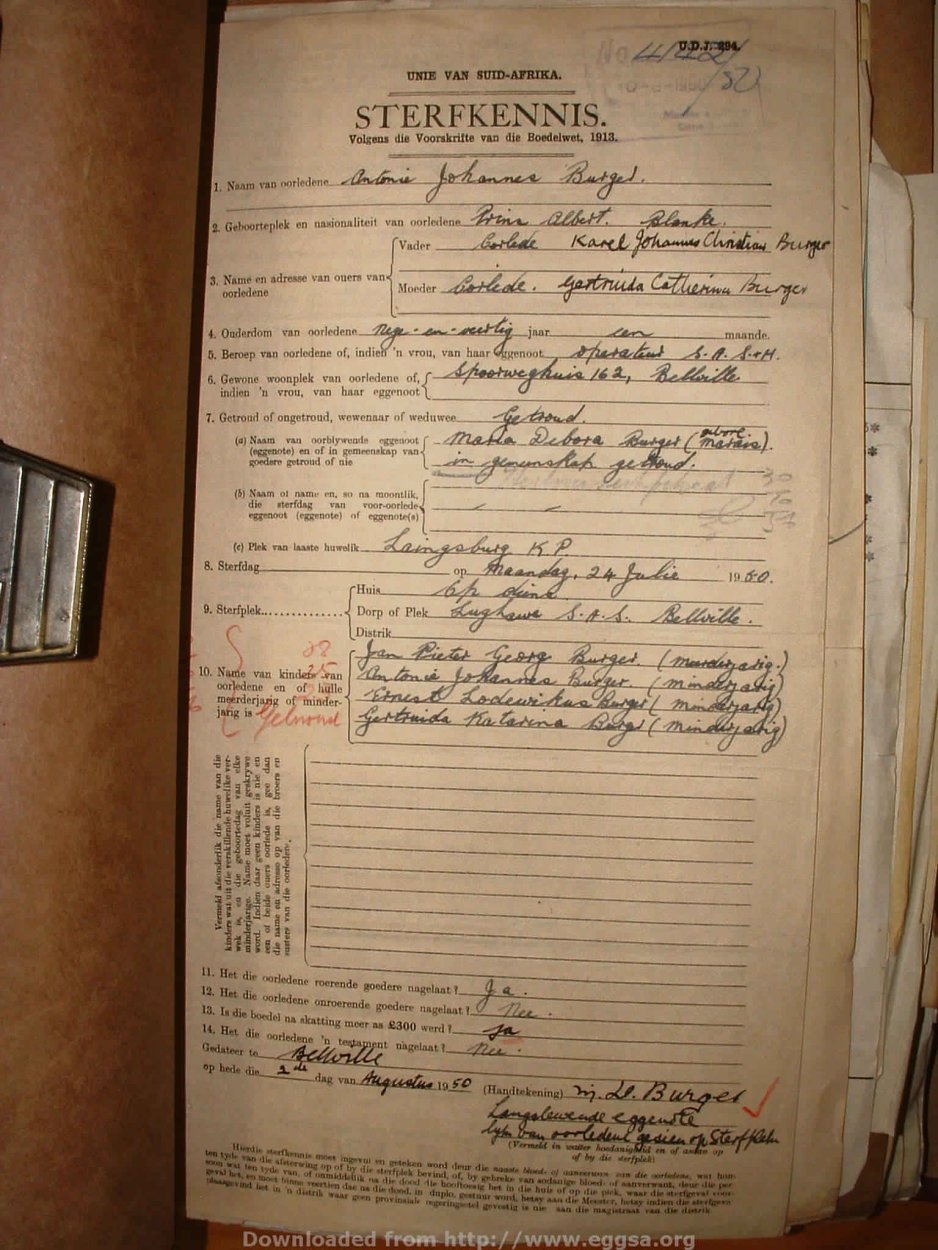 U.D.J. 294.
UNIE VAN SUID-AFRIKA.
STERFKENNIS.
Volgens die Voorskrifte van die Boedelwet, 1913.
1. Naam van oorledene Antonie Johannes Burger.
2. Geboorteplek en nasionaliteit van oorledene Prins Albert. Blanke.
3. Name en adresse van ouers van oorledene
Vader Oorlede Karel Johannes Christian Burger
Moeder Oorlede. Gertruida Catherina Burger
4. Ouderdom van oorledene nege-en-veertig jaar een maande.
5. Beroep van oorledene of, indien 'n vrou, van haar eggenoot operateur S.A.S.+H.
6. Gewone woonplek van oorledene of, indien 'n vrou, van haar eggenoot Spoorweghuis 162, Bellville
7. Getroud of ongetroud, wewenaar of weduwee Getroud
(a) Naam van oorblywende eggenoot (eggenote) en of in gemeenskap van goedere getroud of nie
Maria Debora Burger (gebore Marais).
in gemeenskap getroud.
(b) Naam of name en, so na moontlik, die sterfdag van voor-oorlede eggenoot (eggenote) of eggenote(s) - -
(c) Plek van laaste huwelik Laingsburg K.P.
8. Sterfdag op Maandag, 24 Julie 1950.
9. Sterfplek
Huis Op diens
Dorp of Plek Lughawe S.A.S. Bellville.
Distrik
10. Name van kinders van oorledene en of hulle meerderjarig of minderjarig is
Jan Pieter George Burger (meerderjarig.)
Antonie Johannes Burger (minderjarig)
Ernest Lodewikus Burger (minderjarig)
Gertruida Katarina Burger (minderjarig)
Getroud
Vermeld afsonderlik die name van die
kinders wat uit die verskillende huwelike ver-
wek is, en die geboortedag van elke
minderjarige. Name moet voluit geskrywe
word. Indien daar geen kinders is nie en
een of beide ouers oorlede is, gee dan
die name en adresse op van die broers en
susters van die oorledene.
11. Het die oorledene roerende goedere nagelaat? Ja.
12. Het die oorledene onroerende goedere nagelaat? Nee.
13. Is die boedel na skatting meer as £300 werd? Ja
14. Het die oorledene 'n testament nagelaat? Nee.
Gedateer te Bellville
op hede die 2de dag van Augustus 1950 (Handtekening) M. D. Burger
Langslewende eggenote
lyk van oorledene gesien op Sterfplek
(Vermeld in watter hoedanigheid en of aldan op of by die sterfplek)
Hierdie sterfkennis moet ingevul en geteken word deur die naaste bloed- of aanverwant van die oorledene, wat hom
ten tyde van die afsterwing op of by die sterfplek bevind, of, by gebreke van sodanige bloed- of aanverwant, deur die per
soon wat ten tyde van, of onmiddellik na die dood die hooftoesig het in die huis of op die plek, waar die sterfgeval voor-
geval het, en moet binne veertien dae na die dood, in duplo, gestuur word, hetsy aan die Meester, hetsy indien die sterfgeval
plaasgevind het in 'n distrik waar geen provinsiale regeringsetel gevestig is nie aan die magistraat van die distrik.
Downloaded from http://www.eggsa.org